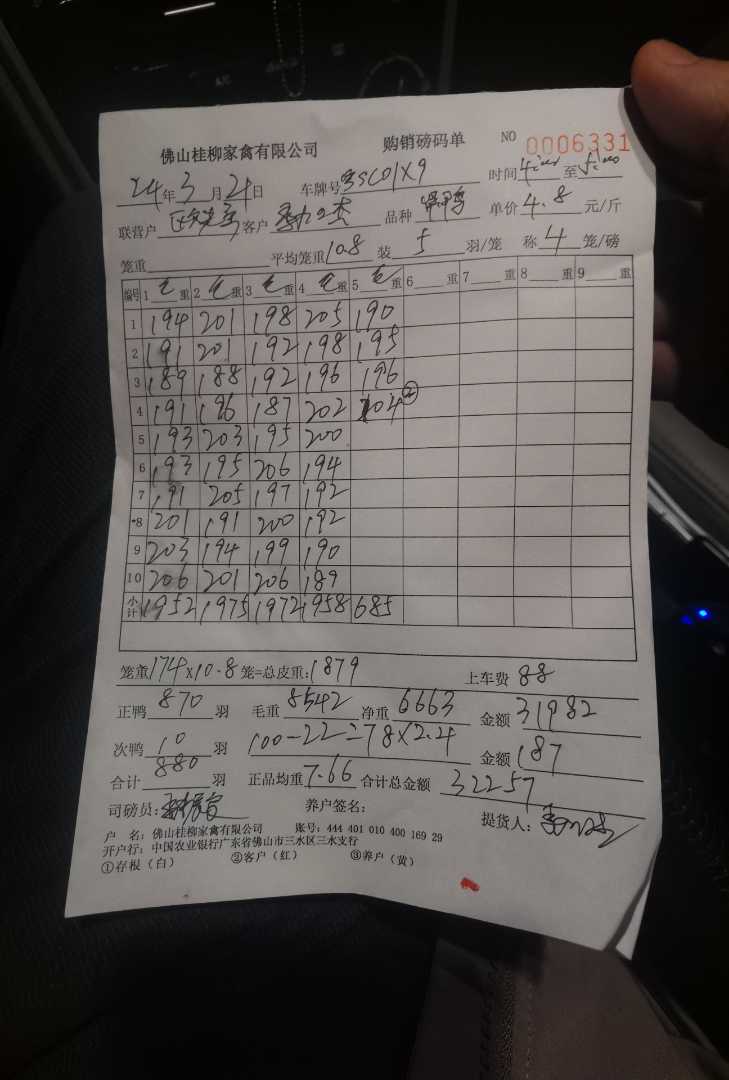 佛山桂柳家禽有限公司 购销磅码单 NO 0006331
24年3月21日 车牌号 时间 至
联营户 客户 品种 单价4.8元/斤
笼重 平均笼重10.8装5羽/笼 称4笼/磅
编号 1毛重 2毛重 3毛重 4毛重 5毛重 6重 7重 8重 9重
1 194 201 198 205 190
2 191 201 192 198 195
3 189 188 192 196 196
4 191 196 187 202 104②
5 193 203 195 200
6 193 195 206 194
7 191 205 197 192
8 201 191 200 192
9 203 194 199 190
10 206 201 206 189
小计 1952 1975 1972 1958 685
笼重174×10.8笼=总皮重:1879 上车费 88
正鸭870羽 毛重8542 净重6663 金额31982
次鸭10羽 100-22=78×2.4 金额187
合计880羽 正品均重7.66 合计总金额32257
司磅员: 养户签名: 提货人:
户 名:佛山桂柳家禽有限公司 账号:444 401 010 400 169 29
开户行:中国农业银行广东省佛山市三水区三水支行
①存根(白) ②客户(红) ③养户(黄)